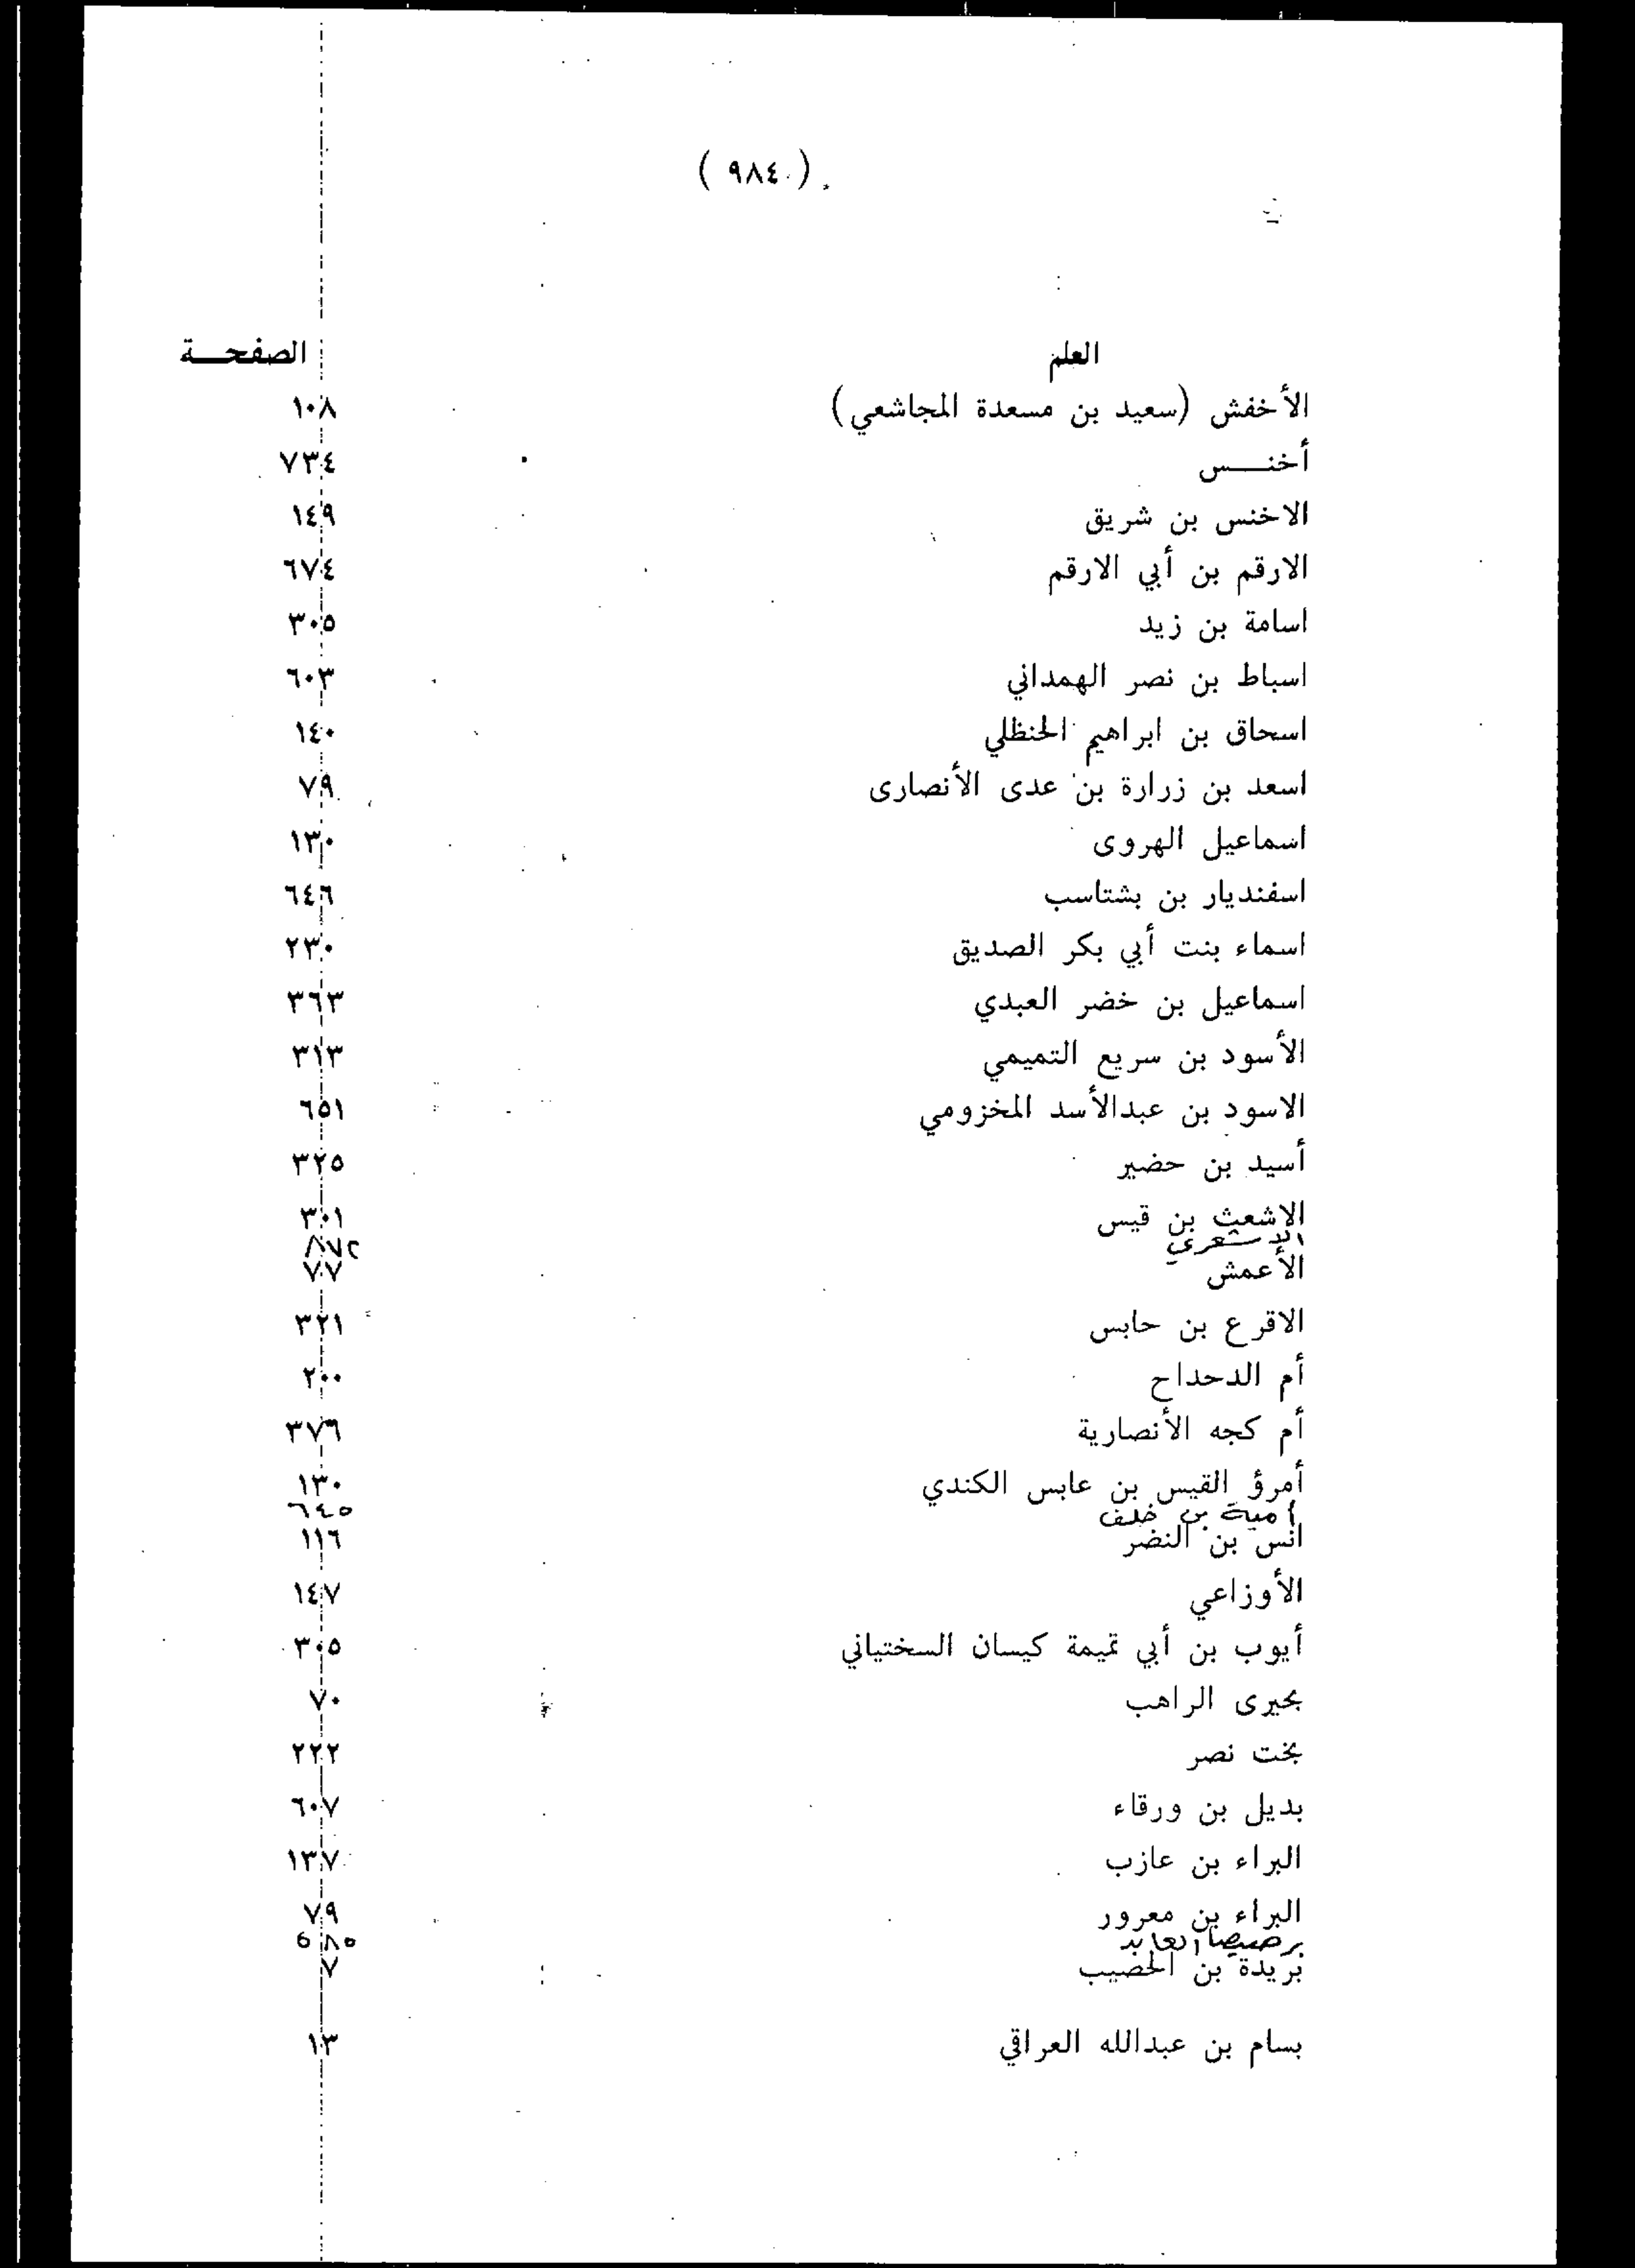 ( ٩٨٤ )
العلم الصفحة
الأخفش (سعيد بن مسعدة المجاشعي) ١٠٨
أخنس ٧٣٤
الاخنس بن شريق ١٤٩
الارقم بن أبي الارقم ٦٧٤
اسامة بن زيد ٣٠٥
اسباط بن نصر الهمداني ٦٠٣
اسحاق بن ابراهيم الحنظلي ١٤٠
اسعد بن زرارة بن عدى الأنصارى ٧٩
اسماعيل الهروى ١٣٠
اسفنديار بن بشتاسب ٦٤٦
اسماء بنت أبي بكر الصديق ٢٣٠
اسماعيل بن خضر العبدي ٣٦٣
الأسود بن سريع التميمي ٣١٣
الاسود بن عبدالأسد المخزومي ٦٥١
أسيد بن حضير ٣٢٥
الاشعث بن قيس ٣٠١
الاشعري ٨٧٢
الأعمش ٧٧
الاقرع بن حابس ٣٢١
أم الدحداح ٢٠٠
أم كجه الأنصارية ٣٧٦
أمرؤ القيس بن عابس الكندي ١٣٠
أمية بن خلف ٦٤٥
انس بن النضر ١١٦
الأوزاعي ١٤٧
أيوب بن أبي تميمة كيسان السختياني ٣٠٥
بحيرى الراهب ٧٠
بخت نصر ٢٢٢
بديل بن ورقاء ٦٠٧
البراء بن عازب ١٣٧
البراء بن معرور ٧٩
برصيصا العابد ٥٨٥
بريدة بن الحصيب ٧
بسام بن عبدالله العراقي ١٣